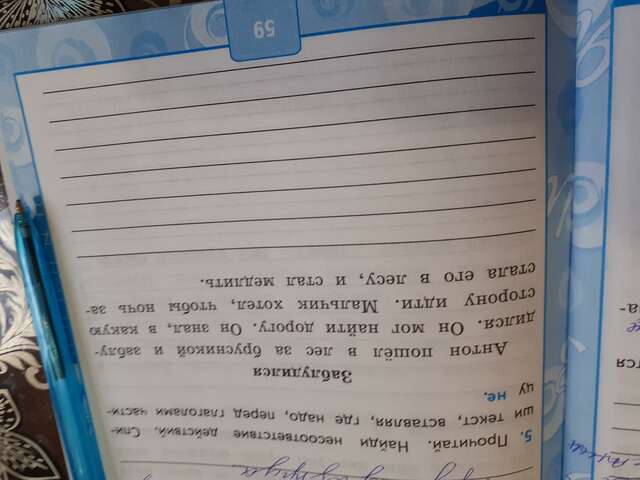 5. Прочитай. Найди несоответствие действий. Спи-
ши текст, вставляя, где надо, перед глаголами части-
цу не.
Заблудился
Антон пошёл в лес за брусникой и заблу-
дился. Он мог найти дорогу. Он, знал, в какую
сторону идти. Мальчик хотел, чтобы ночь за-
стала его в лесу, и стал медлить.
59